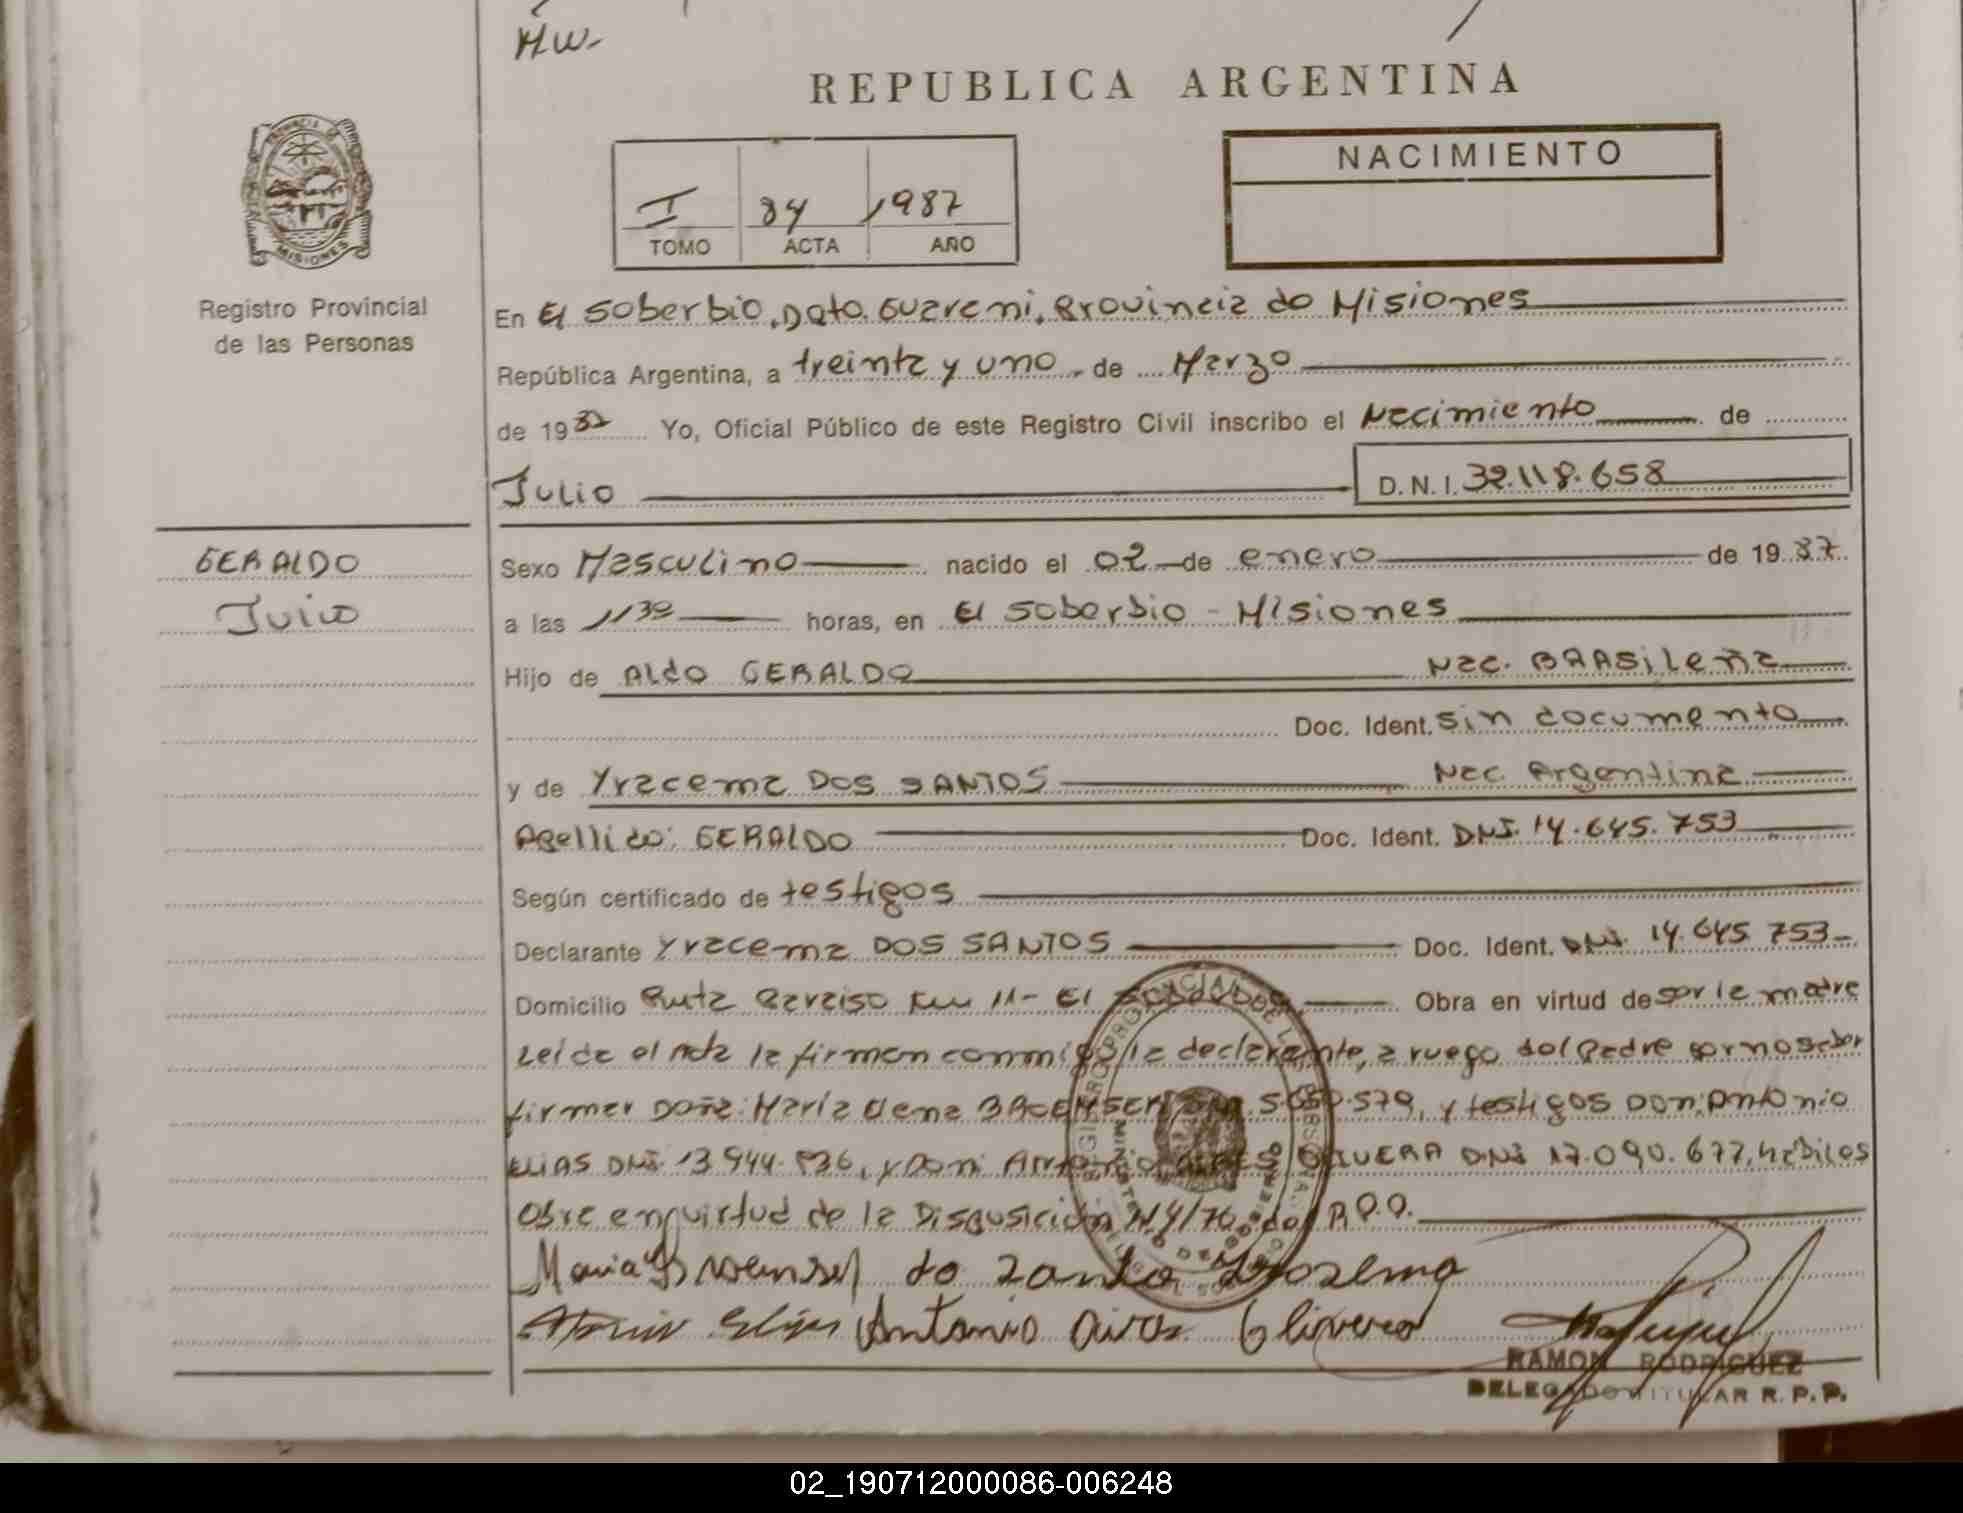 HW-
REPUBLICA ARGENTINA
NACIMIENTO
I 84 1987
TOMO ACTA AÑO
PROVINCIA DE MISIONES
Registro Provincial
de las Personas
En El Soberbio, Dpto. Guarani, Provincia de Misiones
República Argentina, a treinta y uno de Marzo
de 1987 Yo, Oficial Público de este Registro Civil inscribo el Nacimiento de
Julio D.N.I. 32.118.658
GERALDO
Julio
Sexo Masculino nacido el 02 de enero de 1987
a las 1130 horas, en El Soberbio - Misiones
Hijo de Aldo GERALDO Nac. BRASileña
Doc. Ident. sin documento
y de Yracema DOS SANTOS Nac. Argentina
Apellido: GERALDO Doc. Ident. DNI. 14.645.753
Según certificado de testigos
Declarante Yracema DOS SANTOS Doc. Ident. DNI. 14.645.753-
Domicilio Ruta Paraiso Km 11- El Soberbio Obra en virtud de ser la madre
Leida el Acta la firman conmigo la declarante, a ruego del Padre por no saber
firmar Doña: María Elena 579, y testigos Don: Antonio
ELIAS DNI 13.944.836, y Don: Antonio OLIVERA DNI 17.090.677, hábiles
Obra en virtud de la Disposición N 4/70 del R.P.P.
Maria do Zanto
Elias Antonio Aires Olivera
RAMON RODRIGUEZ
DELEGADO TITULAR R.P.P.
02_190712000086-006248